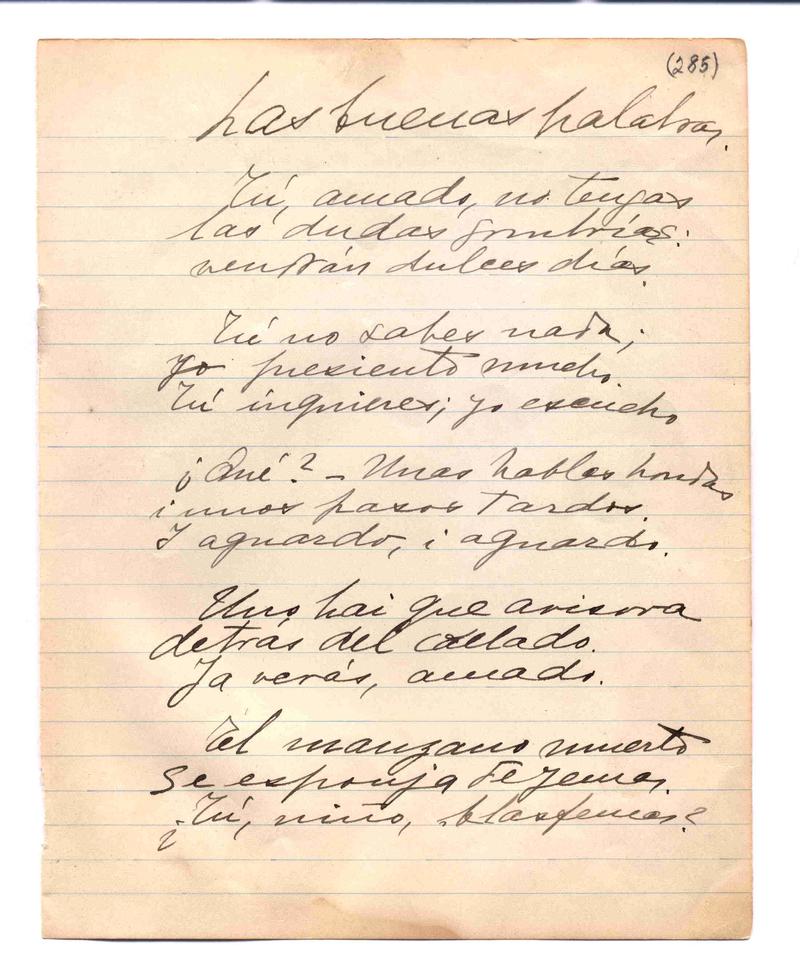 (285)
Las buenas palabras.
Tú, amado, no tengas
las dudas sombrías:
vendrán dulces días.
Tú no sabes nada;
yo presiento mucho.
Tú inquieres; yo escucho
¿Qué? – Unas hablas hondas
i unos pasos tardos.
I aguardo, i aguardo.
Uno hai que avisora
detrás del collado.
Ya verás, amado.
El manzano muerto
se esponja de yemas.
¿Tú, niño, blasfemas?